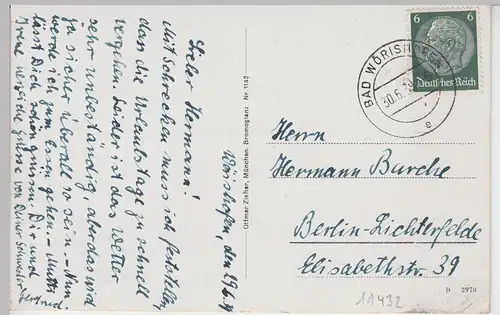 Wörishofen, den 29.6.
Lieber Hermann!
Mit Schrecken muss ich feststellen,
dass die Urlaubstage zu schnell
vergehen. Leider ist das Wetter
sehr unbeständig, aber das wird
ja sicher überall so sein. – Nun
werde ich zum Essen gehen. – Mutti
lässt Dich schön grüssen. Dir und
Irene herzliche Grüsse von Deiner Schwester
Gertrud.
Ottmar Zieher, München. Bromoglanz. Nr. 1142
6 6
Deutsches Reich
BAD WÖRISHOFEN
30.6.
e
Herrn
Hermann Burche
Berlin-Lichterfelde
Elisabethstr. 39
11432
D 2970